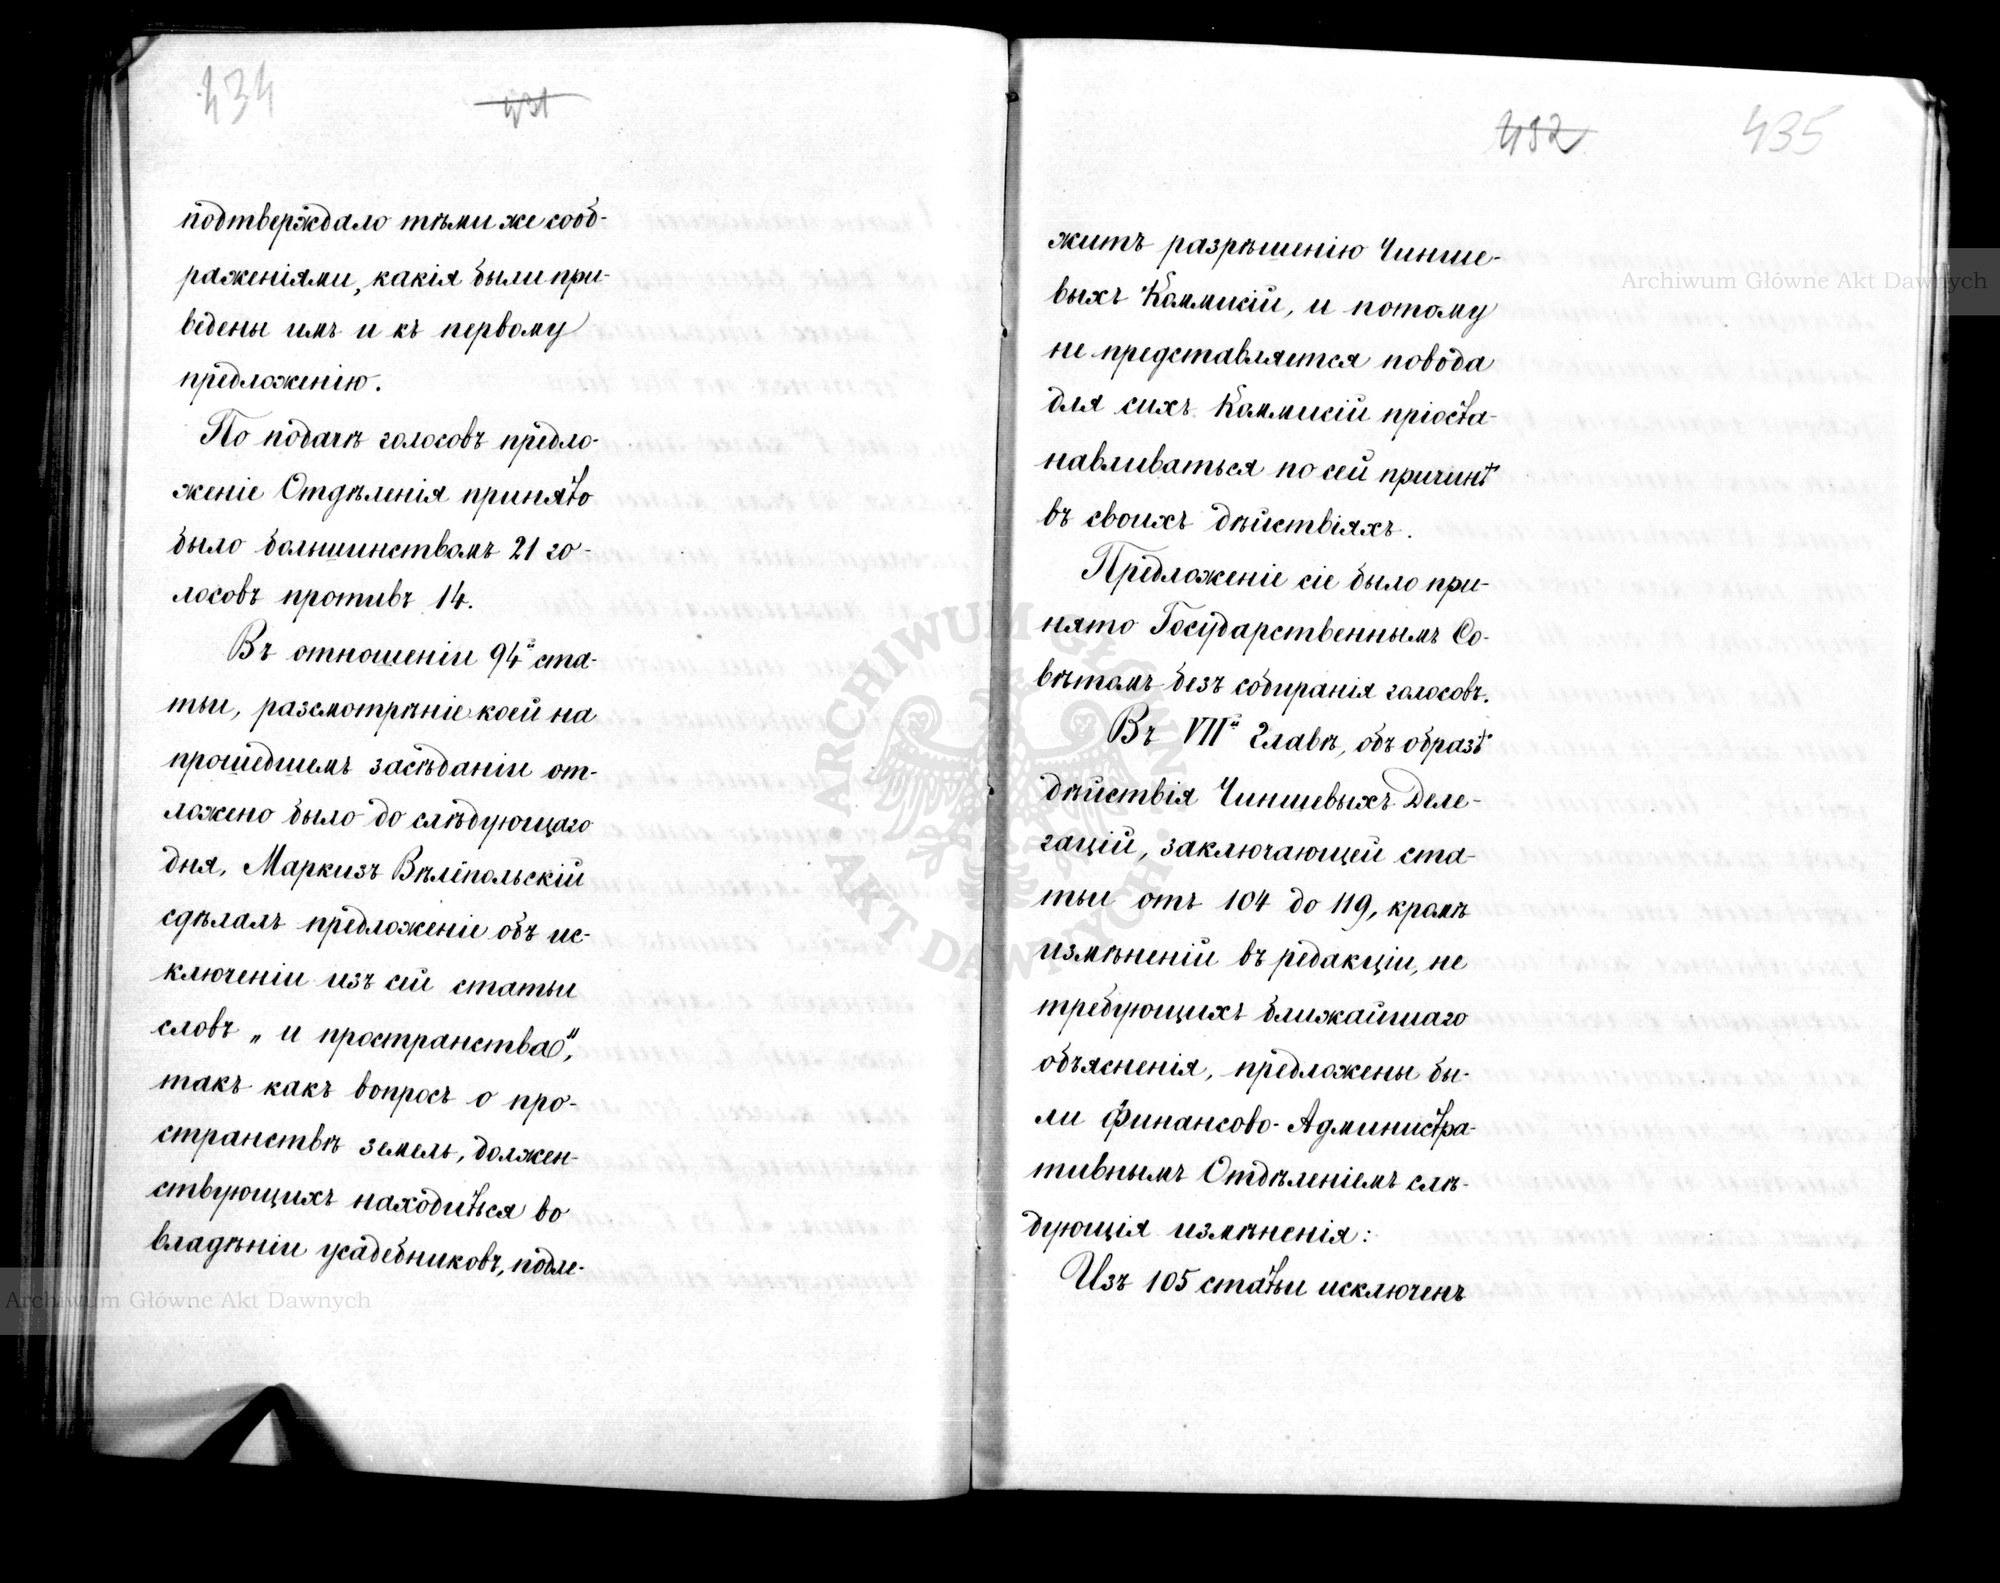 434
431
подтверждало тѣми же сооб-
раженіями, какія были при-
ведены имъ и къ первому
предложенію.
По подачѣ голосовъ предло-
женіе Отдѣленія принято
было большинствомъ 21 го-
лосовъ противъ 14.
Въ отношеніи 94й ста-
тьи, разсмотрѣніе коей на
прошедшемъ засѣданіи от-
ложено было до слѣдующаго
дня, Маркизъ Вѣлёпольскій
сдѣлалъ предложеніе объ ис-
ключеніи изъ сей статьи
словъ „и пространства",
такъ какъ вопросъ о про-
странствѣ земель, должен-
ствующихъ находиться во
владѣніи усадебниковъ, подле-
432
435
житъ разрѣшенію Чинше-
выхъ Коммисій, и потому
не представляется повода
для сихъ Коммисій пріоста-
навливаться по сей причинѣ
въ своихъ дѣйствіяхъ.
Предложеніе сіе было при-
нято Государственнымъ Со-
вѣтомъ безъ собиранія голосовъ.
Въ VIIй Главѣ, объ образѣ
дѣйствія Чиншевыхъ Деле-
гацій, заключающей ста-
тьи отъ 104 до 119, кромѣ
измѣненій въ редакціи, не
требующихъ ближайшаго
объясненія, предложены бы-
ли Финансово-Администра-
тивнымъ Отдѣленіемъ слѣ-
дующія измѣненія:
Изъ 105 статьи исключенъ
Archiwum Główne Akt Dawnych
Archiwum Główne Akt Dawnych
ARCHIWUM GŁÓWNE AKT DAWNYCH